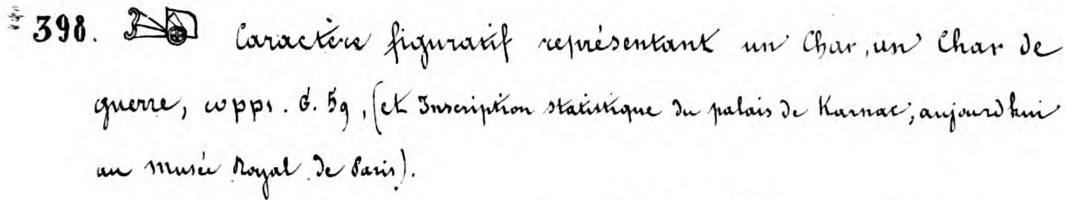 398. Caractère figuratif représentant un Char, un Char de
guerre, copps. G. 59, (et Inscription statistique du palais de Karnac; aujourd'hui
au Musée Royal de Paris).